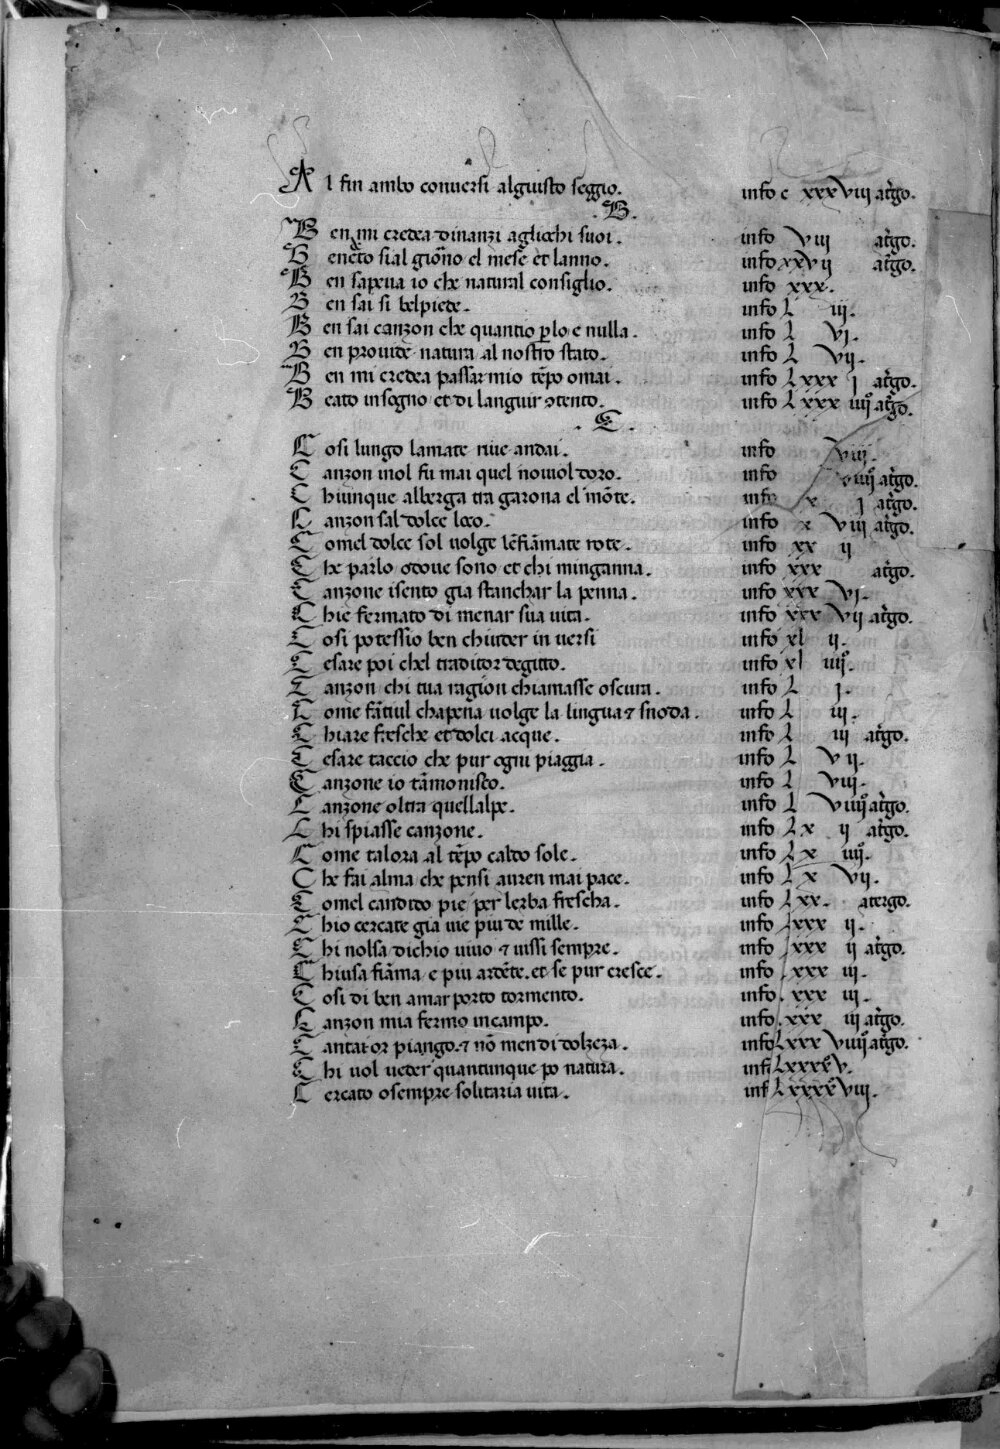 Al fin ambo conuersi algiusto seggio. info c xxxviii at̃go.
.B.
Ben mi credea dinanzi agliocchi suoi. info viii at̃go.
Benedᵉto sial giorno el mese et lanno. info xxvii at̃go.
Ben sapeua io che natural consiglio. info xxx.
Ben sai si belpiede. info L iii.
Ben sai canzon che quantio ꝑlo e nulla. info L vj.
Ben prouide natura al nostro stato. info L vii.
Ben mi credea passar mio tẽpo omai. info Lxxx j at̃go.
Beato insogno et di languir ↄtento. info Lxxx iiii at̃go.
.C.
Cosi lungo lamate riue andai. info viii.
Canzon inol fu mai quel nouol doro. info viiii at̃go.
Chiunque alberga tra garona el mõte. info x j at̃go.
Canzon sal dolce loco. info x viii at̃go.
Comel dolce sol uolge lẽfiãmate rote. info xx ii
Che parlo o doue sono et chi minganna. info xxx at̃go.
Canzone isento gia stanchar la penna. info xxx vj.
Chie fermato di menar sua uita. info xxx vii at̃go.
Cosi potessio ben chiuder in uersi info xl ii.
Cesare poi chel traditor degitto. info xl iiii.
Canzon chi tua ragion chiamasse oscura. info L j.
Come fãtiul chapena uolge la lingua ⁊ snoda. info L iii.
Chiare fresche et dolci acque. info L iii at̃go.
Cesare taccio che pur ogni piaggia. info L vii.
Canzone io tãmonisco. info L viii.
Canzone oltra quellalpe. info L viiii at̃go.
Chi spiasse canzone. info Lx ii at̃go.
Come talora al tẽpo caldo sole. info Lx iiii.
Che fai alma che pensi auren mai pace. info Lx vii.
Comel candido pie per lerba frescha. info Lxx. atergo.
Chio cercate gia uie piu de mille. info Lxxx ii.
Chi nolsa dichio uiuo ⁊ uissi sempre. info Lxxx ii at̃go.
Chiusa fiãma e piu ardẽte. et se pur cresce. info Lxxx iii.
Cosi di ben amar porto tormento. info Lxxx iii.
Canzon mia fermo incampo. info Lxxx iii at̃go.
Cantai or piango. ⁊ nõ men di dolzeza. info Lxxx viiii at̃go.
Chi uol ueder quantunque po natura. inf Lxxxx v.
Cercato o sempre solitaria uita. inf Lxxxx viii.